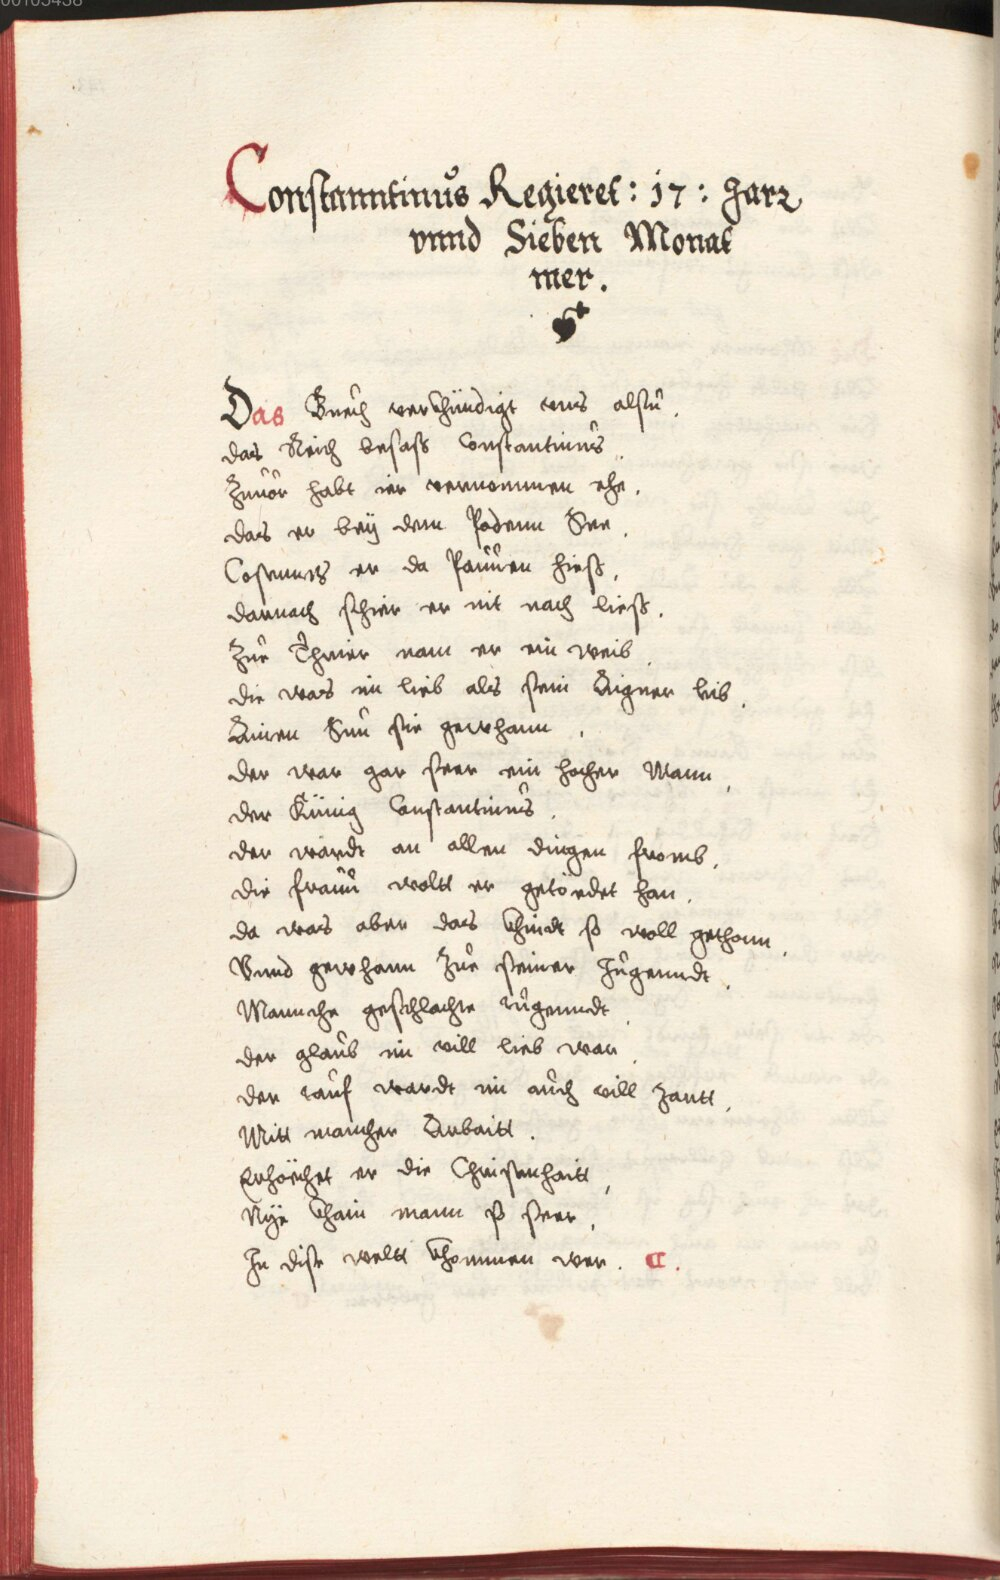 Constanntinus Regieret : 17 : Jarz
vnnd Sieben Monat
mer .
Das Buech verkhündigt vns alsu .
das Reich besass Constantinus .
Zuuor habt ier vernommen ehe .
das er beÿ dem Podemn See .
Costnnts er da Pauuen hiess .
darnach schier er nit nach liess .
Zue Thrier nam er ein weib .
die was im lieb als sein Aigner leib .
Ainen Sun sie gewhann .
der war gar seer ein hocher Mann .
der Künig Constantinus .
der wardt an allen dingen fromb .
die frauu wolt er getoedet han .
da was aber das khindt so woll gethonn .
Vnnd gewhann Zue seiner Jugenndt .
Mannche geschlachte tugenndt .
der glaub im vill lieb war .
der tauf wardt im auch vill zartt .
Mitt mancher Arbaitt .
Erhöechet er die Christenhaitt .
Nÿe khain mann so seer .
In dise weltt khommen wer .